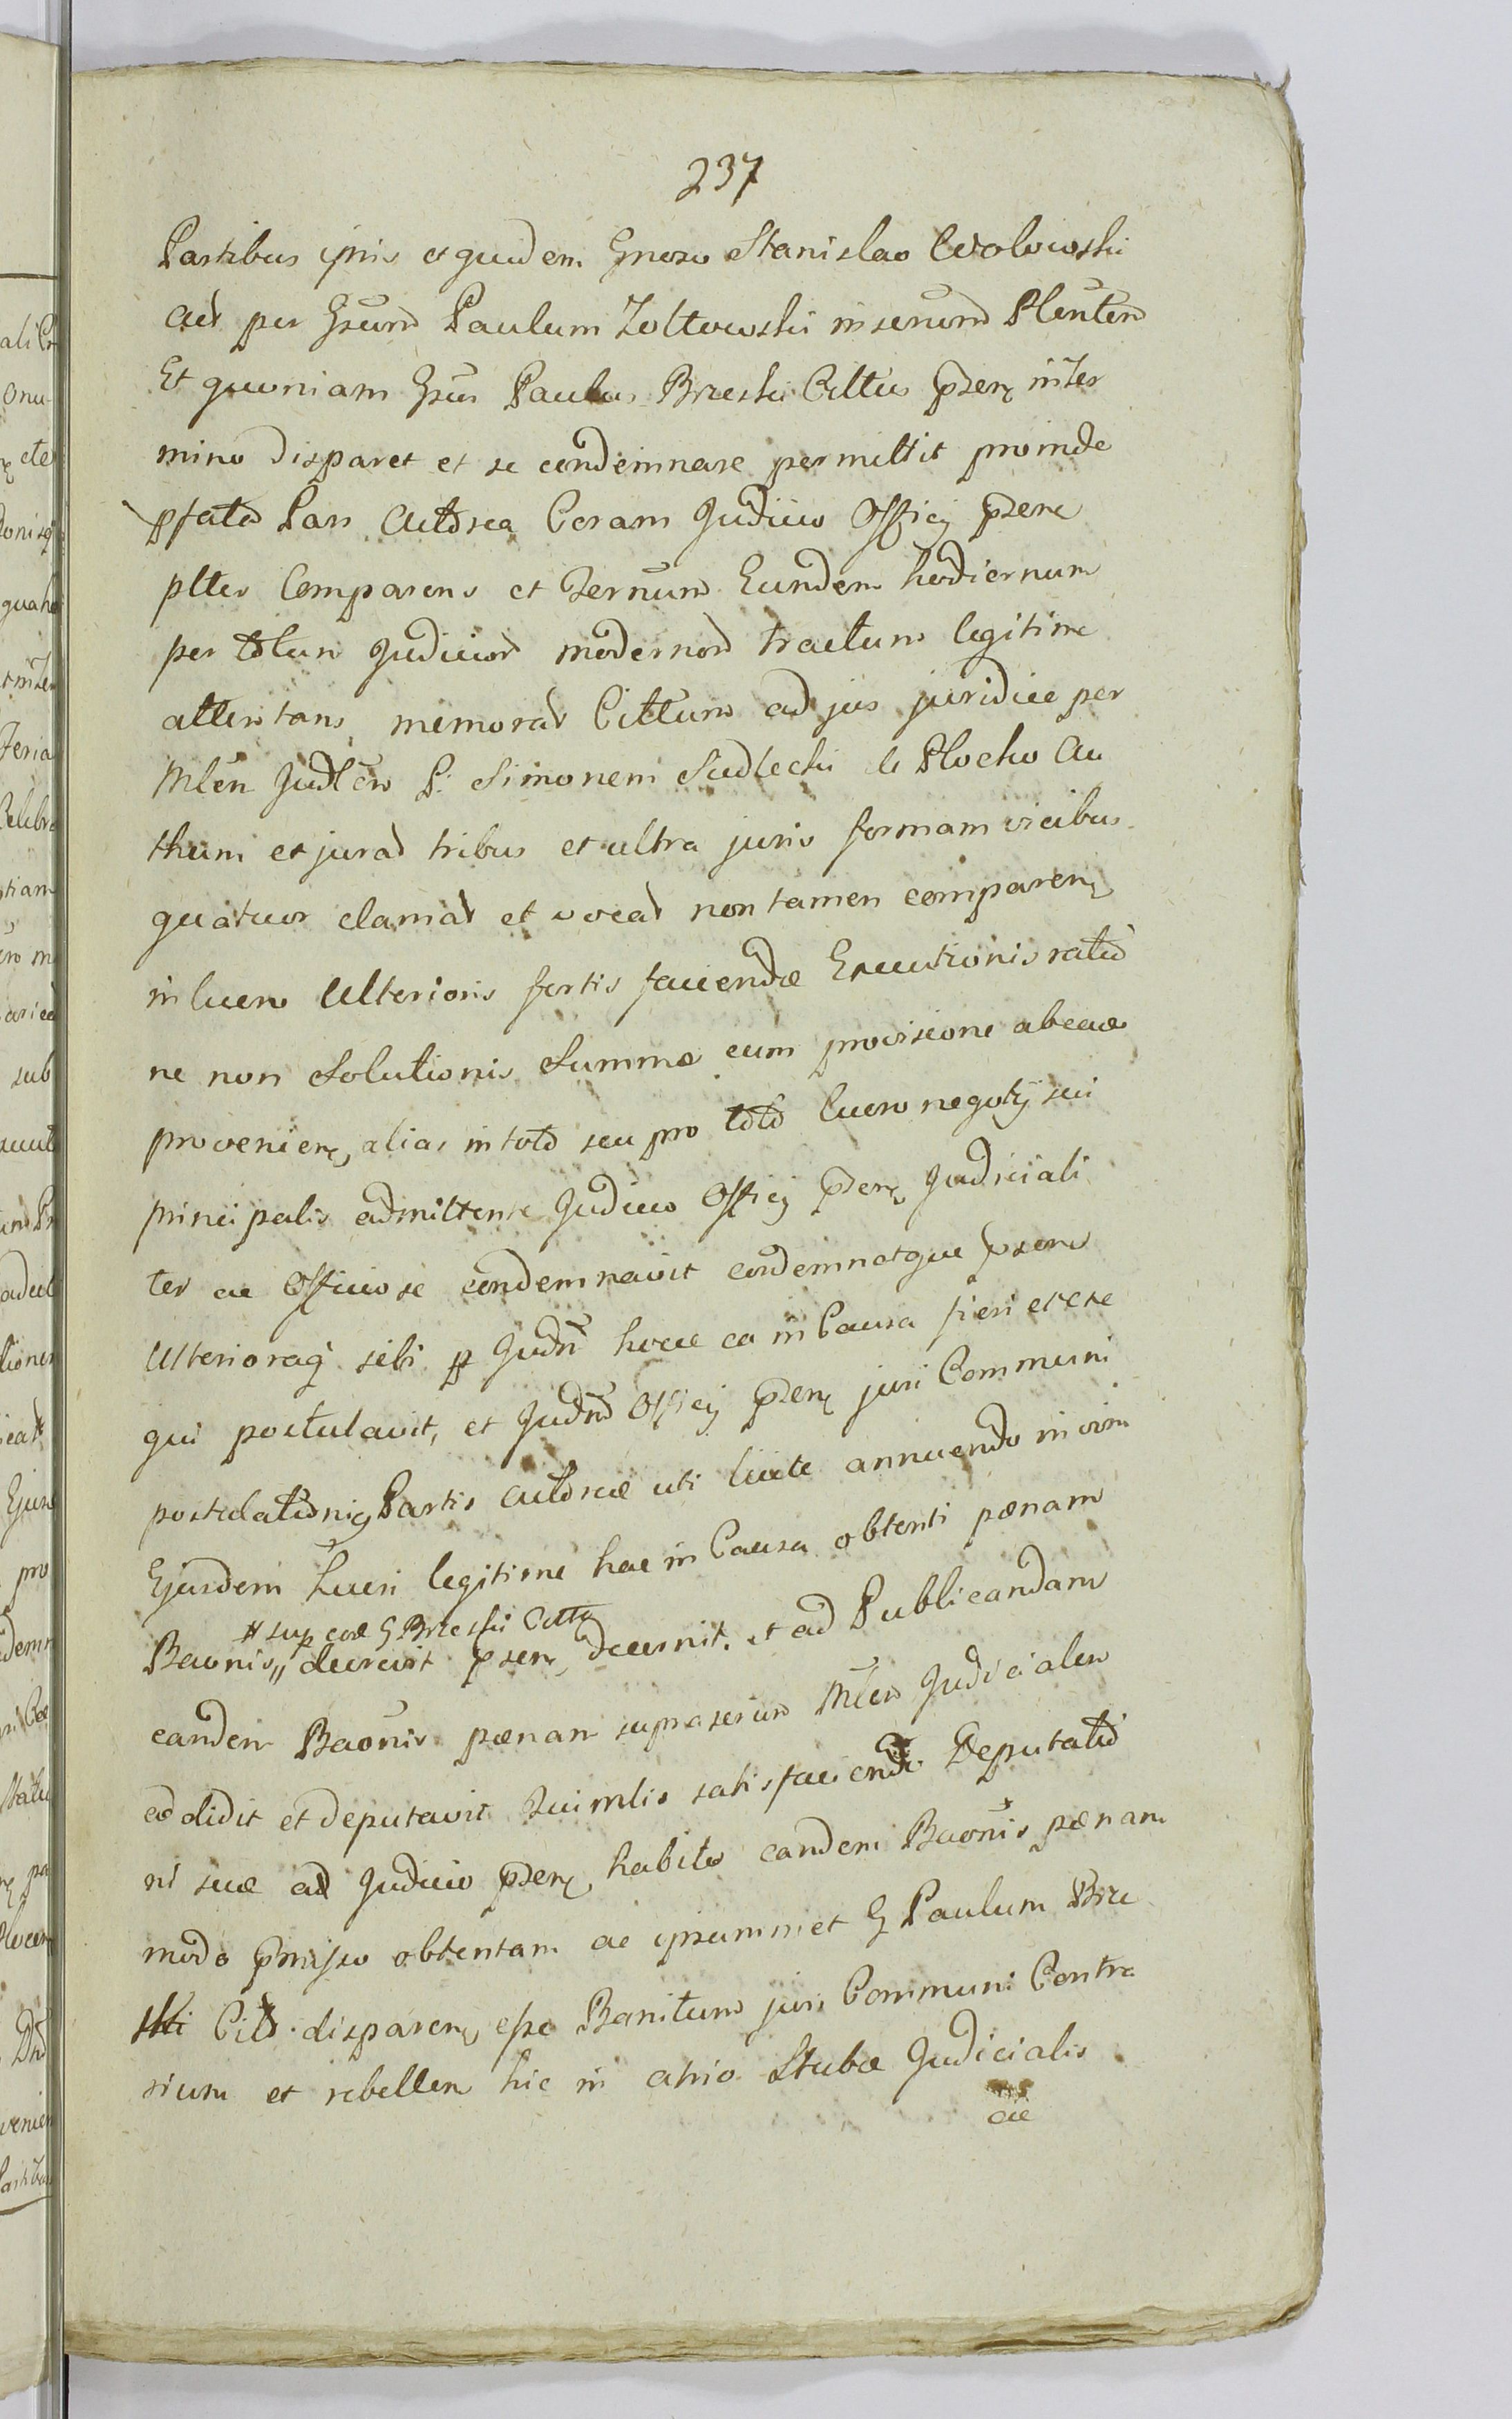 237
Partibus ipsis et quidem Gnoso Stanislao Wolowski
Act per Gsum Paulum Zoltowski inserund Plentem
Et quoniam Gsus Paulus Brzeski Cittus pzens inter
mino disparet et se condemnare permittit proinde
pfata Pars Actorea Coram Judicio Officij pzens
plter Comparens et Zernum Eundem hodiernum
per totum Judicior modernor tractum legitime
attentans memorat Cittum ad jus juridice per
Mlem Judlem P. Simonem Siedlecki de Plocko Au
thum et jurad tribus et ultra juris formam vicibus
quatuor clamat et vocat non tamen comparen
in lucro Ulterioris fortis faciendæ Executionis ratio
ne non Solutionis Summæ cum provisione abeaæ
provenien, alias in toto seu pro toto lucro negotij sui
principalis admittente Judicio Officij pzens Judiciali
ter ac Officiose condemnavit condemnatque pzens
Ulterioraq sibi p Judm hocce ea in Causa fieri et cre
qui postulavit, et Judm Officij pzens juri Communi
postulationiq Partis Actoreæ uti licite annuendo in vim
Ejusdem Lucri legitime hac in Causa obtenti pænam
# sup eod G Brzeski Citto
Baonis,, decrevit pzens, decernit. et ad Publicandam
eandem Baonis pænam supraserium Mlem Judicialem
addidit et deputavit Qui mlis satisfaciendo Deputatio
ni suæ ad Judicio pzens habito eandem Baonis pænam
modo pmisso obtentam ac ipsummet G Paulum Brze
ski Cit. disparen, esse Banitum juri Communi Contra
rium et rebellem hic in atrio Stubæ Judicialis